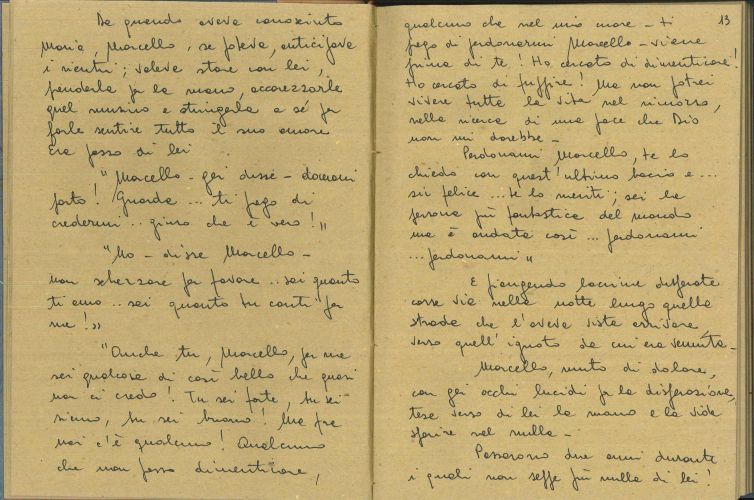 Da quando aveva conosciuto
Maria, Marcello, se poteva, anticipava
i rientri; voleva stare con lei,
prenderla per la mano, accarezzarle
quel musino e stringerla a sé per
farle sentire tutto il suo amore
Era pazzo di lei
"Marcello - gli disse - domani
parto! Guarda ... ti prego di
credermi .. giuro che è vero!"
"No - disse Marcello -
non scherzare per favore .. sai quanto
ti amo .. sai quanto tu conti per
me!"
"Anche tu, Marcello, per me
sei qualcosa di così bello che quasi
non ci credo! Tu sei forte, tu sei
sicuro, tu sei buono! Ma fra
noi c'è qualcuno! Qualcuno
che non posso dimenticare,
13
qualcuno che nel mio cuore - ti
prego di perdonarmi Marcello - viene
prima di te! Ho cercato di dimenticare!
Ho cercato di fuggire! Ma non potrei
vivere tutta la vita nel rimorso,
nella ricerca di una pace che Dio
non mi darebbe -
Perdonami Marcello, te lo
chiedo con quest'ultimo bacio e ...
sii felice ... te lo meriti; sei la
persona più fantastica del mondo
ma è andata così ... perdonami
... perdonami"
E piangendo lacrime disperate
corse via nella notte lungo quella
strada che l'aveva vista arrivare
verso quell'ignoto da cui era venuta -
Marcello, muto di dolore,
con gli occhi lucidi per la disperazione,
tese verso di lei la mano e la vide
sparire nel nulla -
Passarono due anni durante
i quali non seppe più nulla di lei!